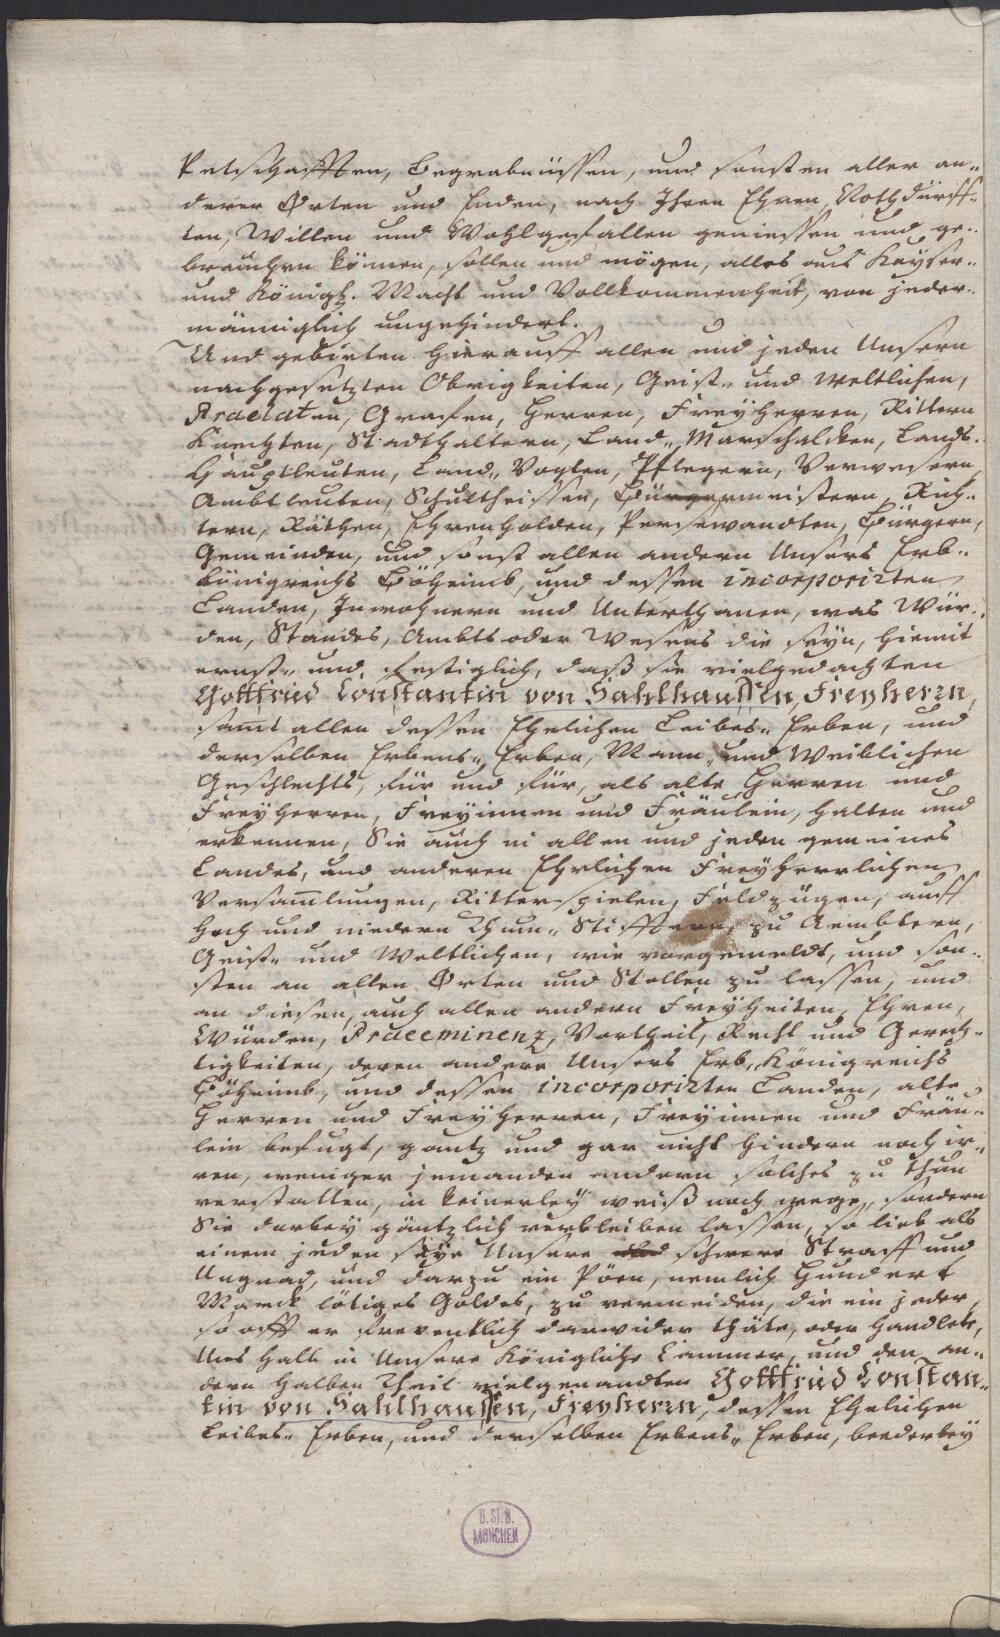 Petschafften, Begrabnüssen, und sonsten aller an„
derer Orten und Enden, nach Ihren Ehren, Nothdürff„
ten, Willen und Wohlgefallen geniessen und ge„
brauchen können, sollen und mögen, alles aus Kayser„
und Königl. Macht und Vollkommenheit, von jeder„
männiglich ungehindert.
Und gebieten hierauff allen und jeden Unsern
nachgesetzten Obrigkeiten, Geist„ und Weltlichen,
Praelaten, Grafen, Herren, Freyherren, Rittern
Knechten, Stadthaltern, Land„ Marschalcken, Lands„
Hauptleuten, Land„ Vogten, Pflegern, Verwesern,
Ambtleuten, Schultheissen, Bürgermeistern, Rich„
tern, Räthen, Ehrenholden, Persevandten, Bürgern,
Gemeinden, und sonst allen andern Unsers Erb„
Königreichs Böheimb, und dessen incorporirten
Landen, Inwohnern und Unterthanen, was Wür„
den, Standes, Ambts oder Wesens die seyn, hiemit
ernst„ und festiglich, daß sie vielgedachten
Gottfried Constantin von Sahlhaussen, Freyherrn,
samt allen dessen Ehelichen Leibes„ Erben, und
derselben Erbens„ Erben, Mann„ und Weiblichen
Geschlechts, für und für, als alte Herren und
Freyherren, Freyinnen und Fräulein, halten und
erkennen, Sie auch in allen und jeden gemeines
Landes, und anderen Ehrlichen Freyherrlichen
Versam̅lungen, Ritterspielen, Feldzügen, auff
Hoch und niedern Thum„ Stifftern, zu Aembtern,
Geist„ und Weltlichen, wie vorgemeldt, und son„
sten an allen Orten und Stellen zu lassen, und
an diesen, auch allen andern Freyheiten, Ehren,
Würden, Praeeminenz, Vortheil, Recht und Gerech„
tigkeiten, deren andere Unsers Erb„ Königreichs
Böheimb, und dessen incorporirten Landen, alte
Herren und Freyherren, Freyinnen und Fräu„
lein befugt, gantz und gar nicht hindern noch ir„
ren, weniger jemanden andern solches zu thun
verstatten, in keinerley weiß noch wege, sondern
Sie darbey gäntzlich verbleiben lassen, so lieb als
einem jeden seye Unsere schwere Straff und
Ungnad, und darzu ein Pöen, nemlich Hundert
Marck lötiges Goldes, zu vermeiden, die ein jeder,
so offt er freventlich darwider thäte, oder handlete,
Uns halb in Unsere Königliche Cammer, und den an„
dern halben Theil vielgenandten Gottfried Constan„
tin von Sahlhaussen, Freyherrn, dessen Ehelichen
Leibes„ Erben, und derselben Erbens„ Erben, beederley
B.St.B.
MÜNCHEN